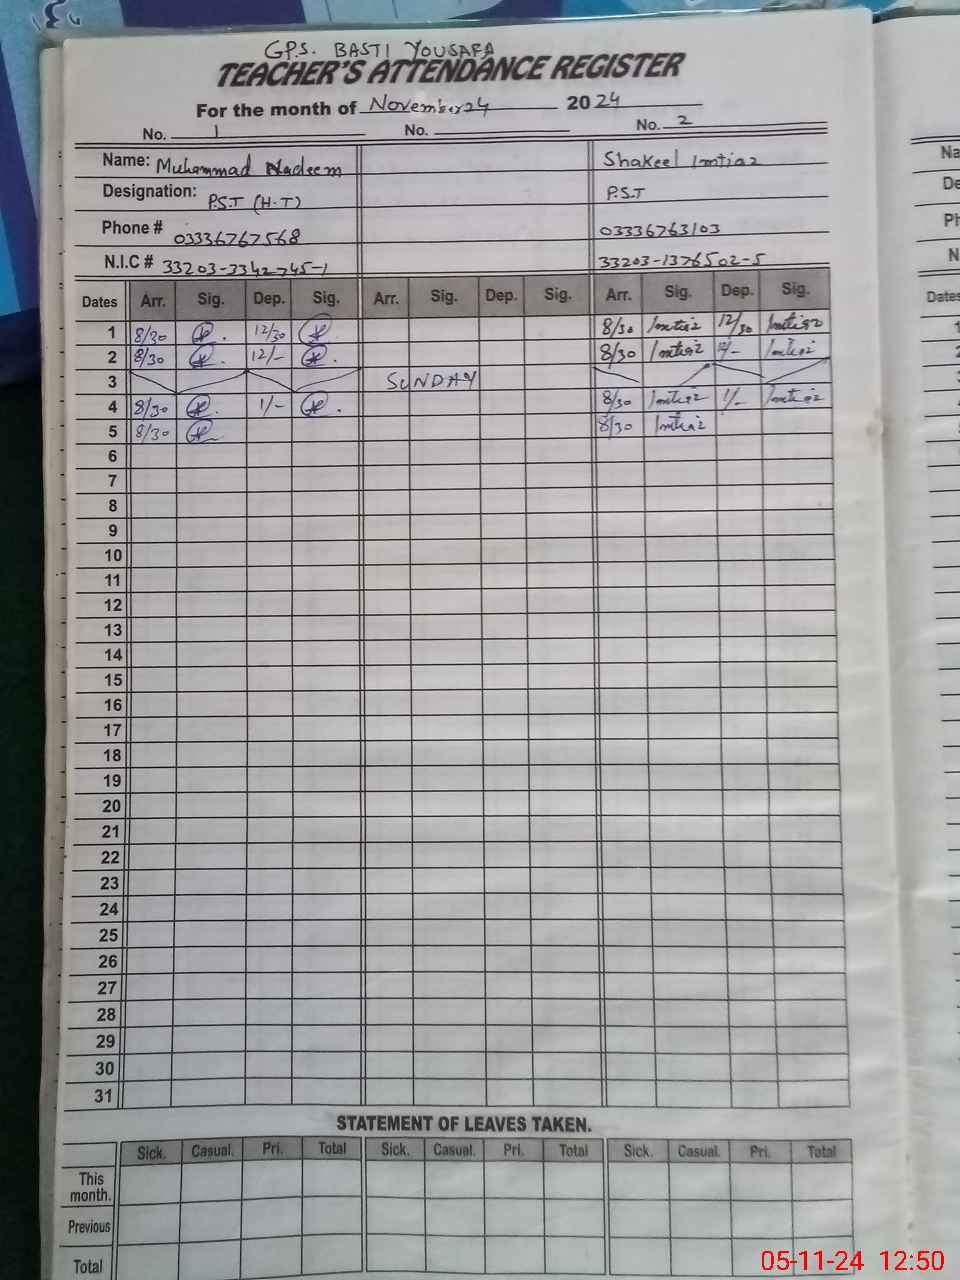 G.P.S. BASTI YOUSAFA
TEACHER'S ATTENDANCE REGISTER
For the month of November 24 2024
No. 1 No. No. 2
Name: Muhammad Nadeem Shakeel Imtiaz
Designation: P.S.T (H.T) P.S.T
Phone # 03336767568 03336763103
N.I.C # 33203-3342745-1 33203-1376502-5
Dates Arr. Sig. Dep. Sig. Arr. Sig. Dep. Sig. Arr. Sig. Dep. Sig.
1 8/30 12/30 8/30 Imtiaz 12/30 Imtiaz
2 8/30 12/- 8/30 Imtiaz 12/- Imtiaz
3 SUNDAY
4 8/30 1/- 8/30 Imtiaz 1/- Imtiaz
5 8/30 8/30 Imtiaz
6
7
8
9
10
11
12
13
14
15
16
17
18
19
20
21
22
23
24
25
26
27
28
29
30
31
STATEMENT OF LEAVES TAKEN.
Sick. Casual. Pri. Total Sick. Casual. Pri. Total Sick. Casual. Pri. Total
This
month.
Previous
Total
Na
De
Ph
N
Dates
05-11-24 12:50